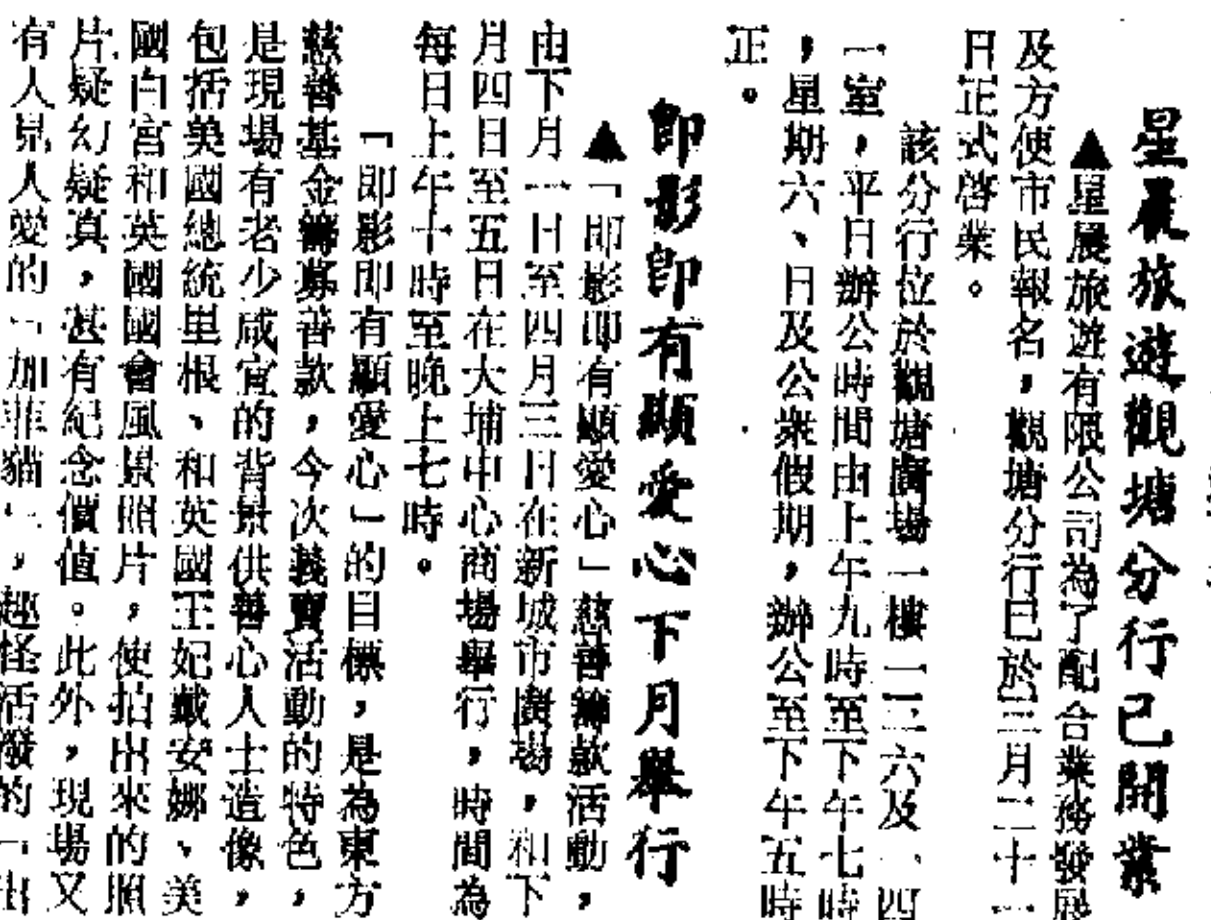 星晨旅遊觀塘分行已開業
▲星晨旅遊有限公司為了配合業務發展
及方便市民報名,觀塘分行已於三月二十一
日正式啓業。
該分行位於觀塘廣場一樓一三六及一四
一室,平日辦公時間由上午九時至下午七時
,星期六、日及公衆假期,辦公至下午五時
正。
即影即有顯愛心下月舉行
▲「即影即有顯愛心」慈善籌款活動,
由下月一日至四月三日在新城市廣場,和下
月四日至五日在大埔中心商場舉行,時間為
每日上午十時至晚上七時。
「即影即有顯愛心」的目標,是為東方
慈善基金籌募善款,今次義賣活動的特色,
是現場有老少咸宜的背景供善心人士造像,
包括美國總統里根、和英國王妃戴安娜、美
國白宮和英國國會風景照片,使拍出來的照
片疑幻疑真,甚有紀念價值。此外,現場又
有人見人愛的「加菲貓」,趣怪活潑的「